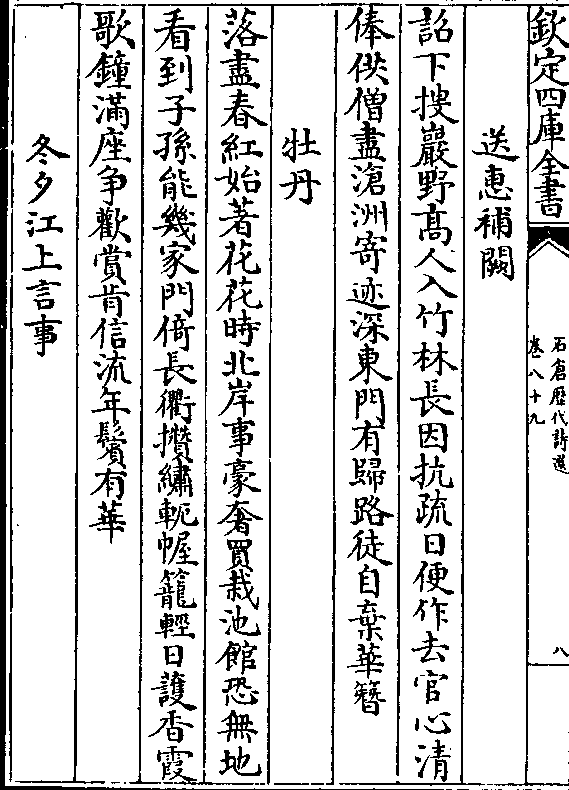 欽定四庫全書
石倉歴代詩選
卷八十九
八
送惠補闕
詔下搜巖野髙人入竹林長因抗疏日便作去官心清
俸供僧盡滄洲寄迹深東門有歸路徒自棄華簪
牡丹
落盡春紅始著花花時北岸事豪奢買栽池館恐無地
看到子孫能幾家門倚長衢攢繡軛幄籠輕日護香霞
歌鐘滿座争歡賞肯信流年鬢有華
冬夕江上言事